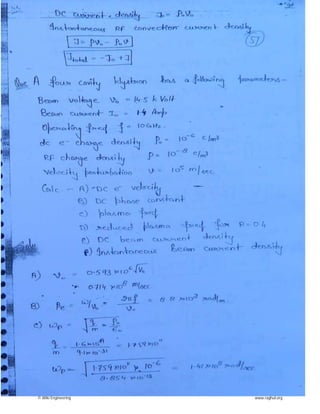 DC current density J₀ = ρ₀V₀
Instantaneous RF convection current density
J = ρV₀ - ρ₀V
(51)
J total = - J₀ + J
A four cavity klystron has a following parameters -
Beam voltage V₀ = 14.5 k Volt
Beam current I₀ = 1.4 Amp
Operating freq f = 10 GHz.
dc e⁻ charge density ρ₀ = 10⁻⁶ c/m³
RF charge density ρ = 10⁻⁸ c/m³
Velocity perturbation V = 10⁵ m/sec
Calc - A) DC e⁻ velocity
B) DC phase constant
c) plasma freq
D) reduced plasma freq for R = 0.4
E) DC beam current density
F) Instantaneous Beam current density
A) V₀ = 0.593 × 10⁶ √V₀
= 0.714 × 10⁸ m/sec
B) βe = ω/V₀ = 2πf / V₀ = 8.8 × 10² rad/m.
c) ωp = √(q/m × ρ₀/ε₀)
q/m = 1.6×10⁻¹⁹ / 9.1×10⁻³¹ = 1.759 × 10¹¹
ωp = √(1.759 × 10¹¹ × 10⁻⁶ / 8.854 × 10⁻¹²) = 1.41 × 10⁸ rad/sec
© Wiki Engineering www.raghul.org